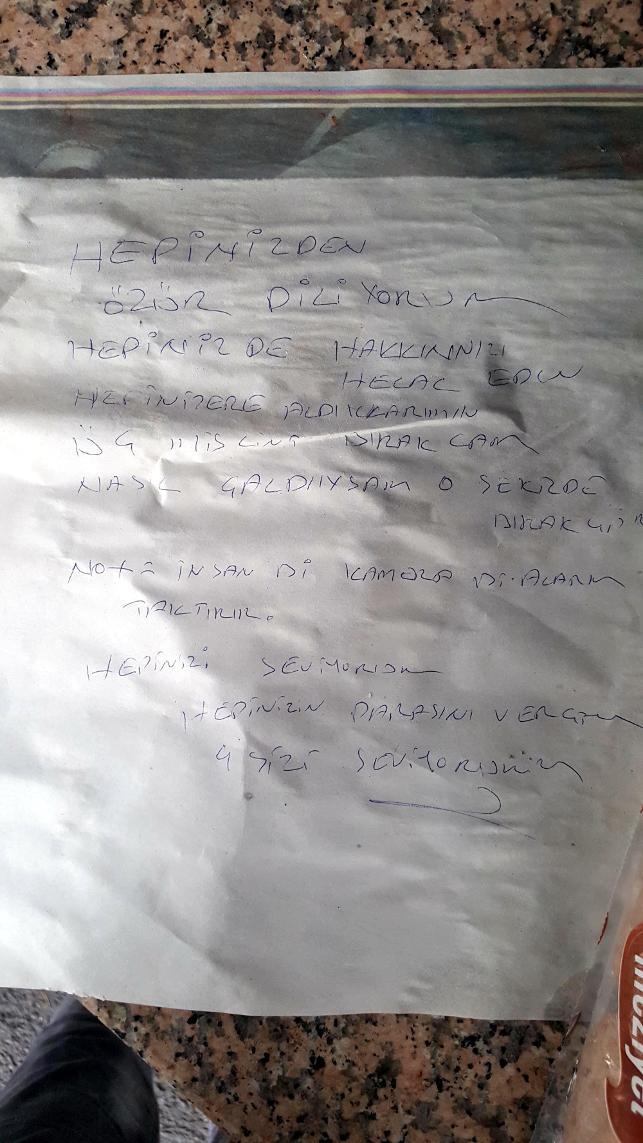 HEPİNİZDEN
ÖZÜR DİLİYORUM
HEPİNİZDE HAKKINNIZI
HELAL EDİN
HEPİNİZERE ALDIKLARIMIN
ÜÇ MİSLİNİ BIRAKCAM
NASIL GALDIIYSAM O SEKİLDE
NOT = İNSAN Bİ KAMERA Bİ ALARM
TAKTIRIR.
HEPİNİZİ SEVİYORUM
HEPİNİZİN PARASINI VERCEM
SİZİ SEVİYORUM